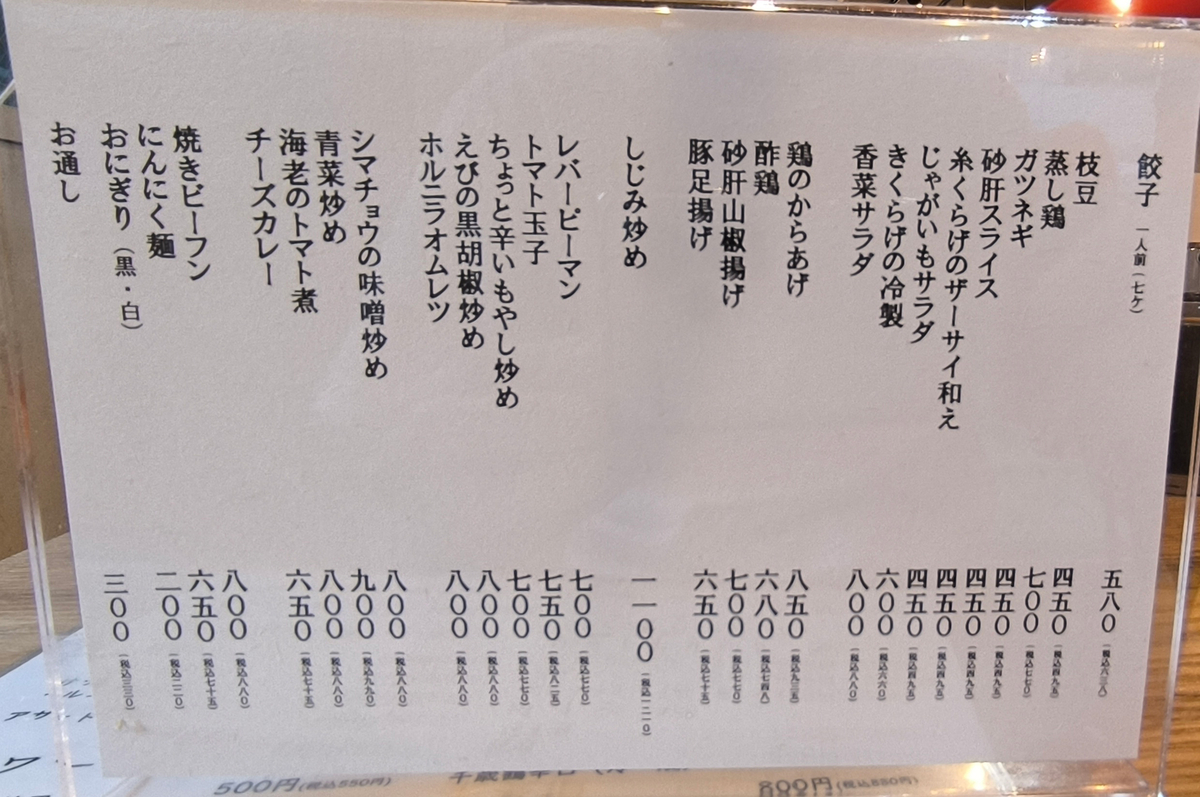 餃子 一人前(七ケ) 五八〇(税込六三八)
枝豆 四五〇(税込四九五)
蒸し鶏 七〇〇(税込七七〇)
ガツネギ 四五〇(税込四九五)
砂肝スライス 四五〇(税込四九五)
糸くらげのザーサイ和え 四五〇(税込四九五)
じゃがいもサラダ 四五〇(税込四九五)
きくらげの冷製 六〇〇(税込六六〇)
香菜サラダ 八〇〇(税込八八〇)
鶏のからあげ 八五〇(税込九三五)
酢鶏 六八〇(税込七四八)
砂肝山椒揚げ 七〇〇(税込七七〇)
豚足揚げ 六五〇(税込七十五)
しじみ炒め 一一〇〇(税込一二一〇)
レバーピーマン 七〇〇(税込七七〇)
トマト玉子 七五〇(税込八二五)
ちょっと辛いもやし炒め 七〇〇(税込七七〇)
えびの黒胡椒炒め 八〇〇(税込八八〇)
ホルニラオムレツ 八〇〇(税込八八〇)
シマチョウの味噌炒め 八〇〇(税込八八〇)
青菜炒め 九〇〇(税込九九〇)
海老のトマト煮 八〇〇(税込八八〇)
チーズカレー 六五〇(税込七十五)
焼きビーフン 八〇〇(税込八八〇)
にんにく麺 六五〇(税込七十五)
おにぎり(黒・白) 二〇〇(税込二二〇)
お通し 三〇〇(税込三三〇)
500円(税込550円)
800円(税込880円)